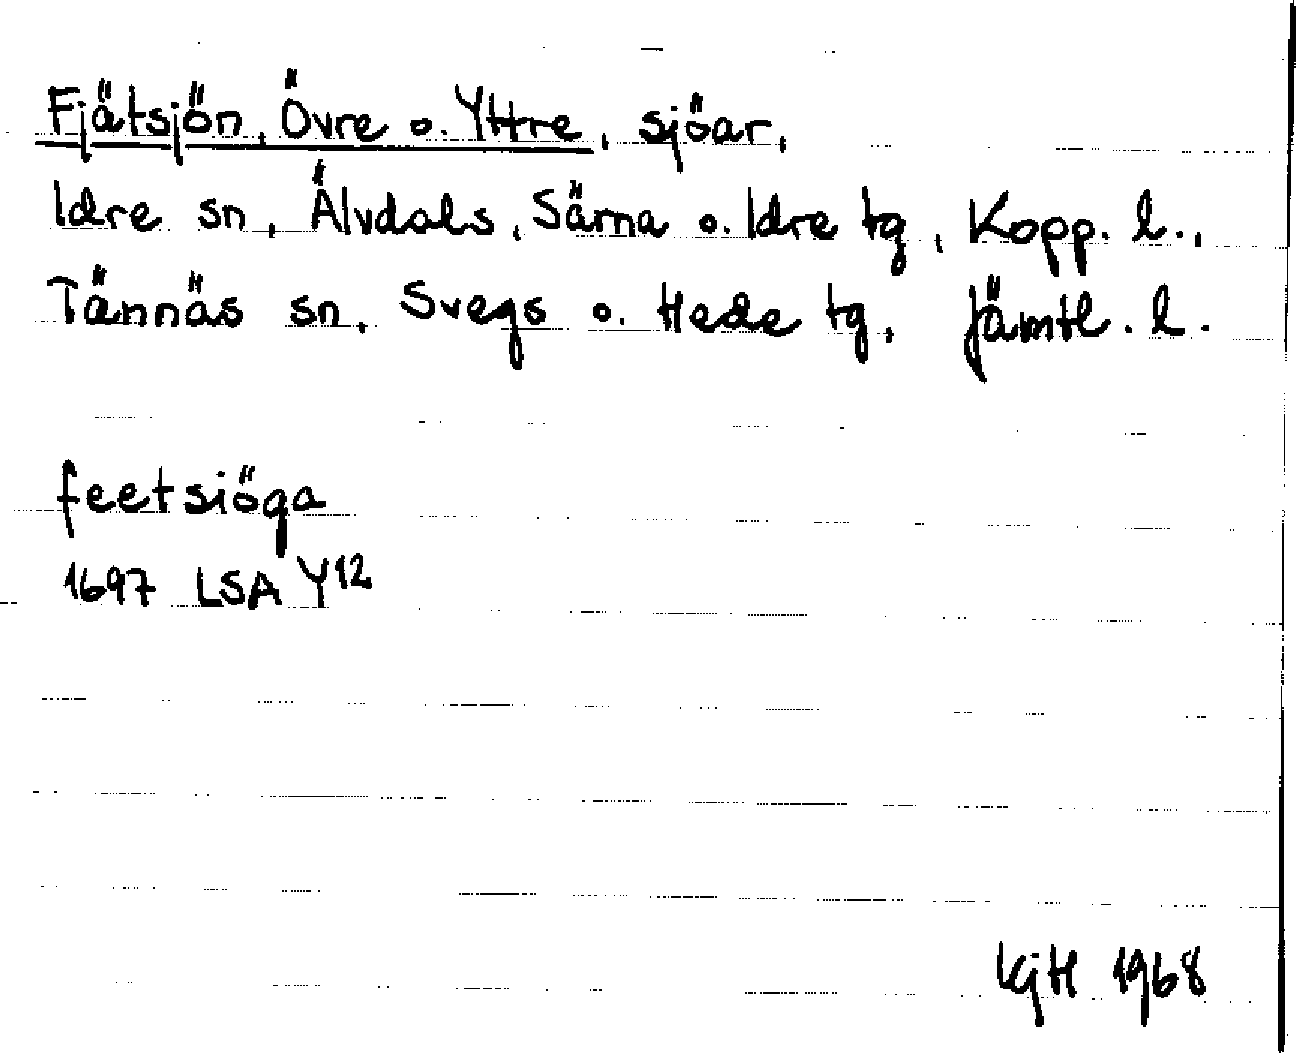 Fjätsjön, Övre o. Yttre, sjöar,
Idre sn, Älvdals, Särna o. Idre tg, Kopp. l.,
Tännäs sn, Svegs o. Hede tg, Jämtl. l.
feetsiöga
1697 LSA Y12
KjH 1968